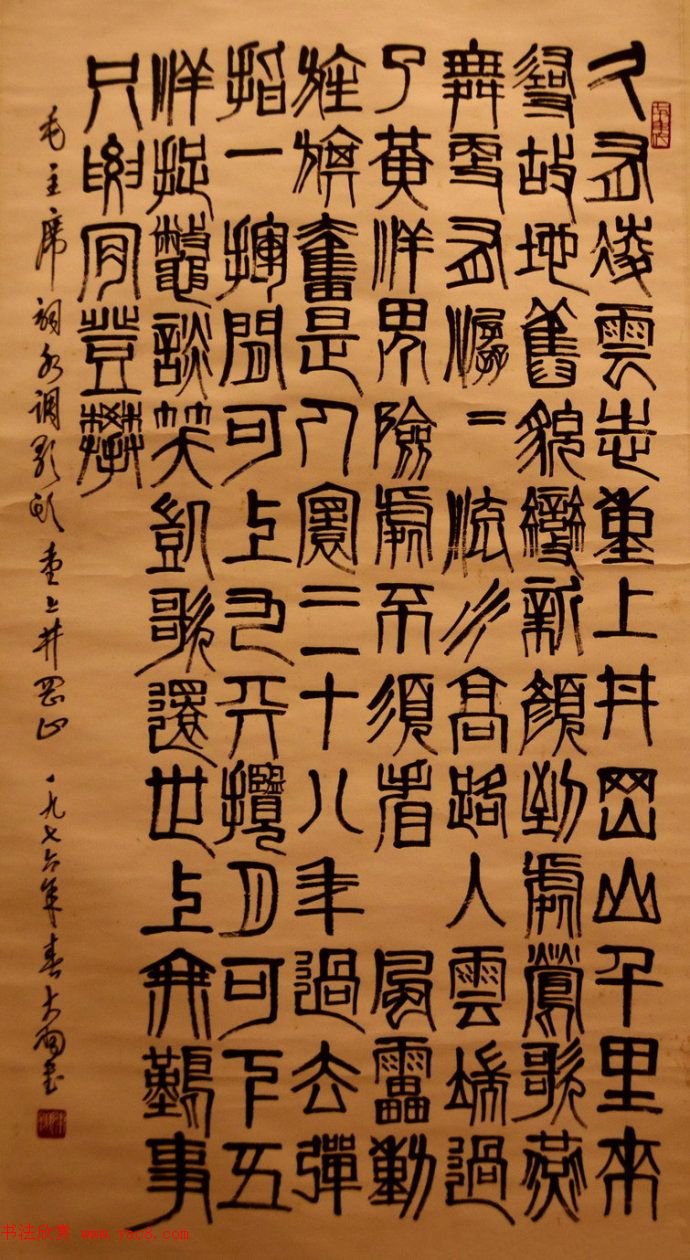 久有凌雲志重上井岡山千里來
尋故地舊貌變新顏到處鶯歌燕
舞更有潺〃流水高路入雲端過
了黃洋界險處不須看 風雷動
旌旗奮是人寰三十八年過去彈
指一揮間可上九天攬月可下五
洋捉鱉談笑凱歌還世上無難事
只要肯登攀
毛主席詞水调歌头 重上井岡山 一九七六年春大
书法欣赏 www.yac8.com